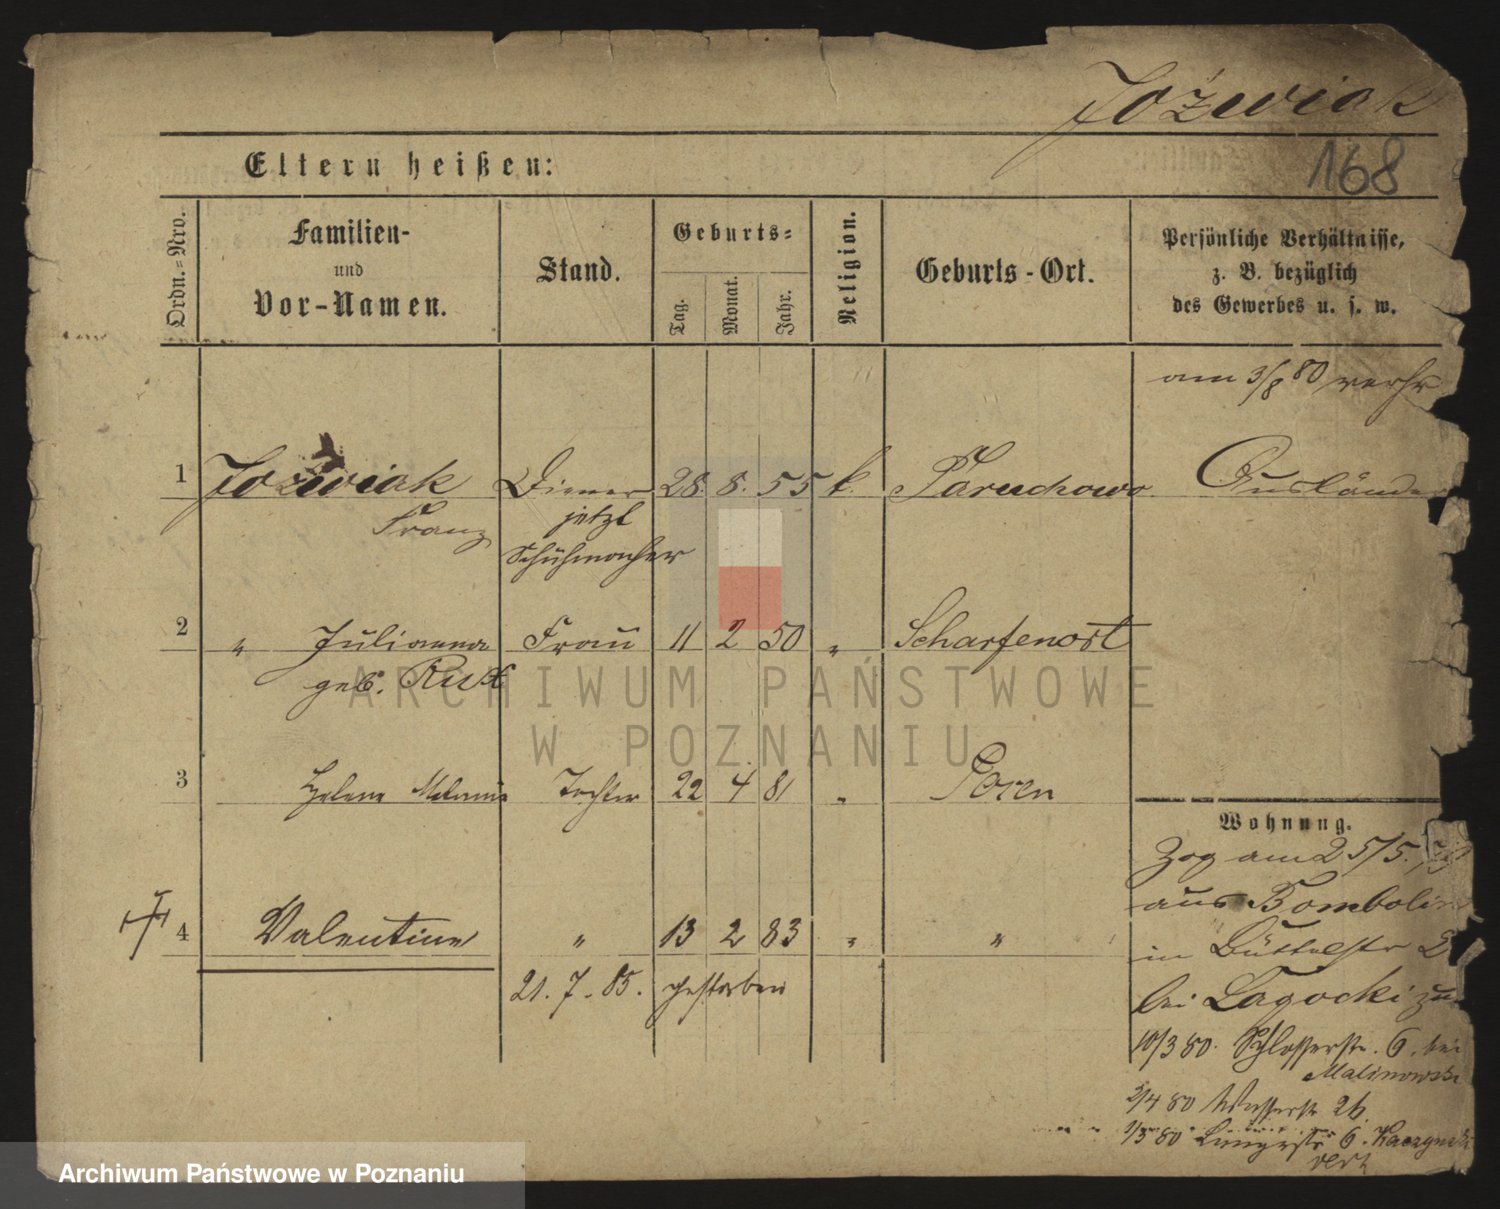 Jożwiak
168
Eltern heißen:
Ordn.-Nro.
Familien-
und
Vor-Namen.
Stand.
Geburts-
Tag.
Monat.
Jahr.
Religion.
Geburts-Ort.
Persönliche Verhältnisse,
z. B. bezüglich
des Gewerbes u. s. w.
am 3/8 80 verhr
1 Jożwiak Diener 28. 8. 55 k. Paruchowo Ausländer
Franz jetzt
Schuhmacher
2 " Julianna Frau 11 2 50 " Scharfenort
geb. Rux
3 Helena Melanie Tochter 22 4 81 " Posen
Wohnung.
Zog am 25/5.
aus Bombolin
4 Valentine " 13 2 83 " "
in Büttelstr 2
21. 7. 85. gestorben
bei Lagocki zu
10/3 80. Schlosserstr. 6. bei
Malinowski
2/4 80 Wasserstr 26
1/3 80 6.
ARCHIWUM PAŃSTWOWE
W POZNANIU
Archiwum Państwowe w Poznaniu